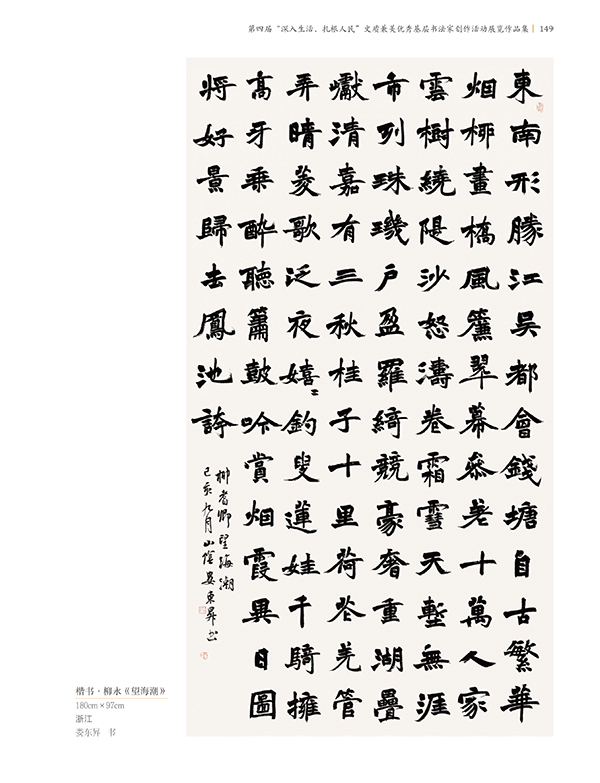 第四届“深入生活、扎根人民”文质兼美优秀基层书法家创作活动展览作品集 149
東南形勝江吳都會錢塘自古繁華
烟柳畫橋風簾翠幕參差十萬人家
雲樹繞堤沙怒濤卷霜雪天塹無涯
市列珠璣戶盈羅綺競豪奢重湖疊
巘清嘉有三秋桂子十里荷花羌管
弄晴菱歌泛夜嬉〻釣叟蓮娃千騎擁
高牙乘醉聽簫鼓吟賞烟霞異日圖
將好景歸去鳳池誇
柳耆卿望海潮
己亥九月山陰婁東昇书
楷书·柳永《望海潮》
180cm×97cm
浙江
娄东昇 书